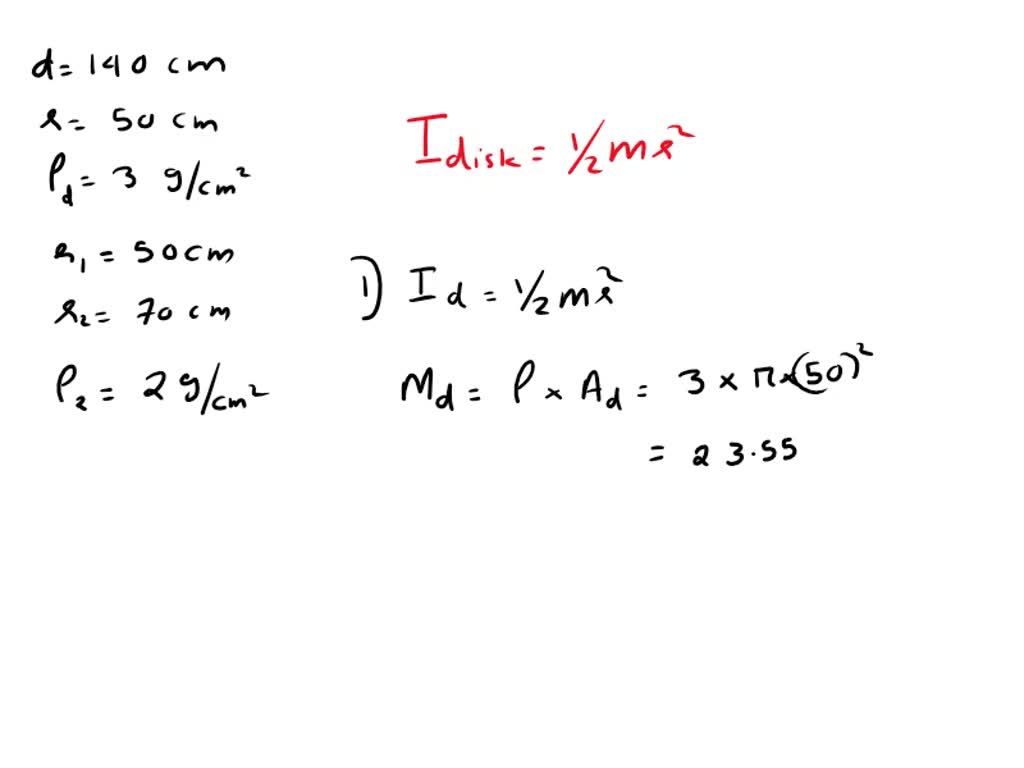 d = 140 cm
r = 50 cm
ρd = 3 g/cm²
r₁ = 50cm
r₂ = 70 cm
ρ₂ = 2 g/cm²
Idisk = 1/2 mr²
1) Id = 1/2 mr²
Md = ρ × Ad = 3 × π × (50)²
= 23.55